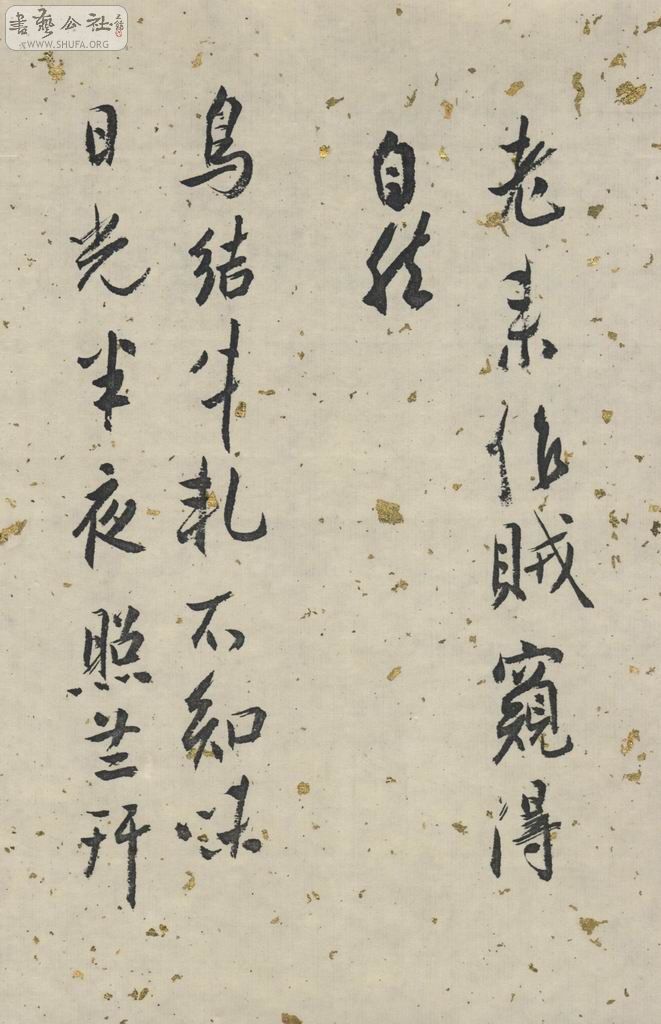 老来作賊窺得
自然
鳥結牛軋不知味
日光半夜照
書藝公社
WWW.SHUFA.ORG